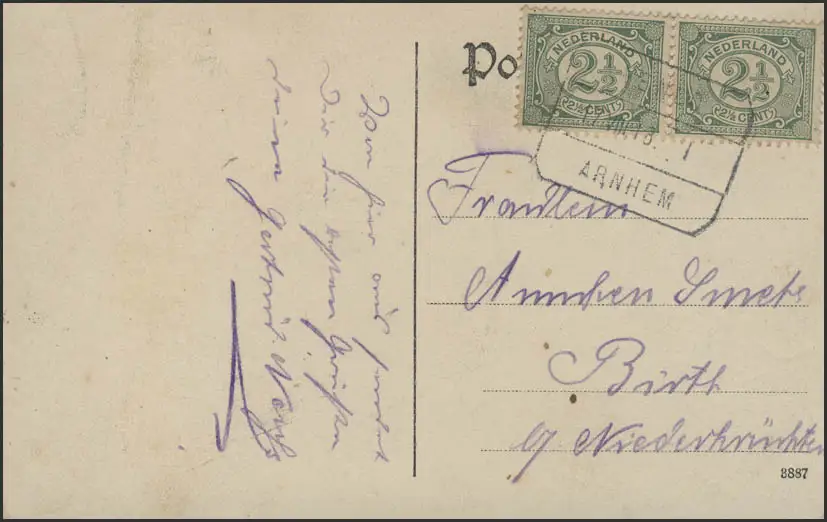 Po
NEDERLAND
2½
2½ CENT
NEDERLAND
2½
2½ CENT
ARNHEM
Fräulein
Annchen Smets
Birth
b/ Niederkrüchten
Von hier aus sendet
Dir die besten Grüßen
deine Gertrud
3887